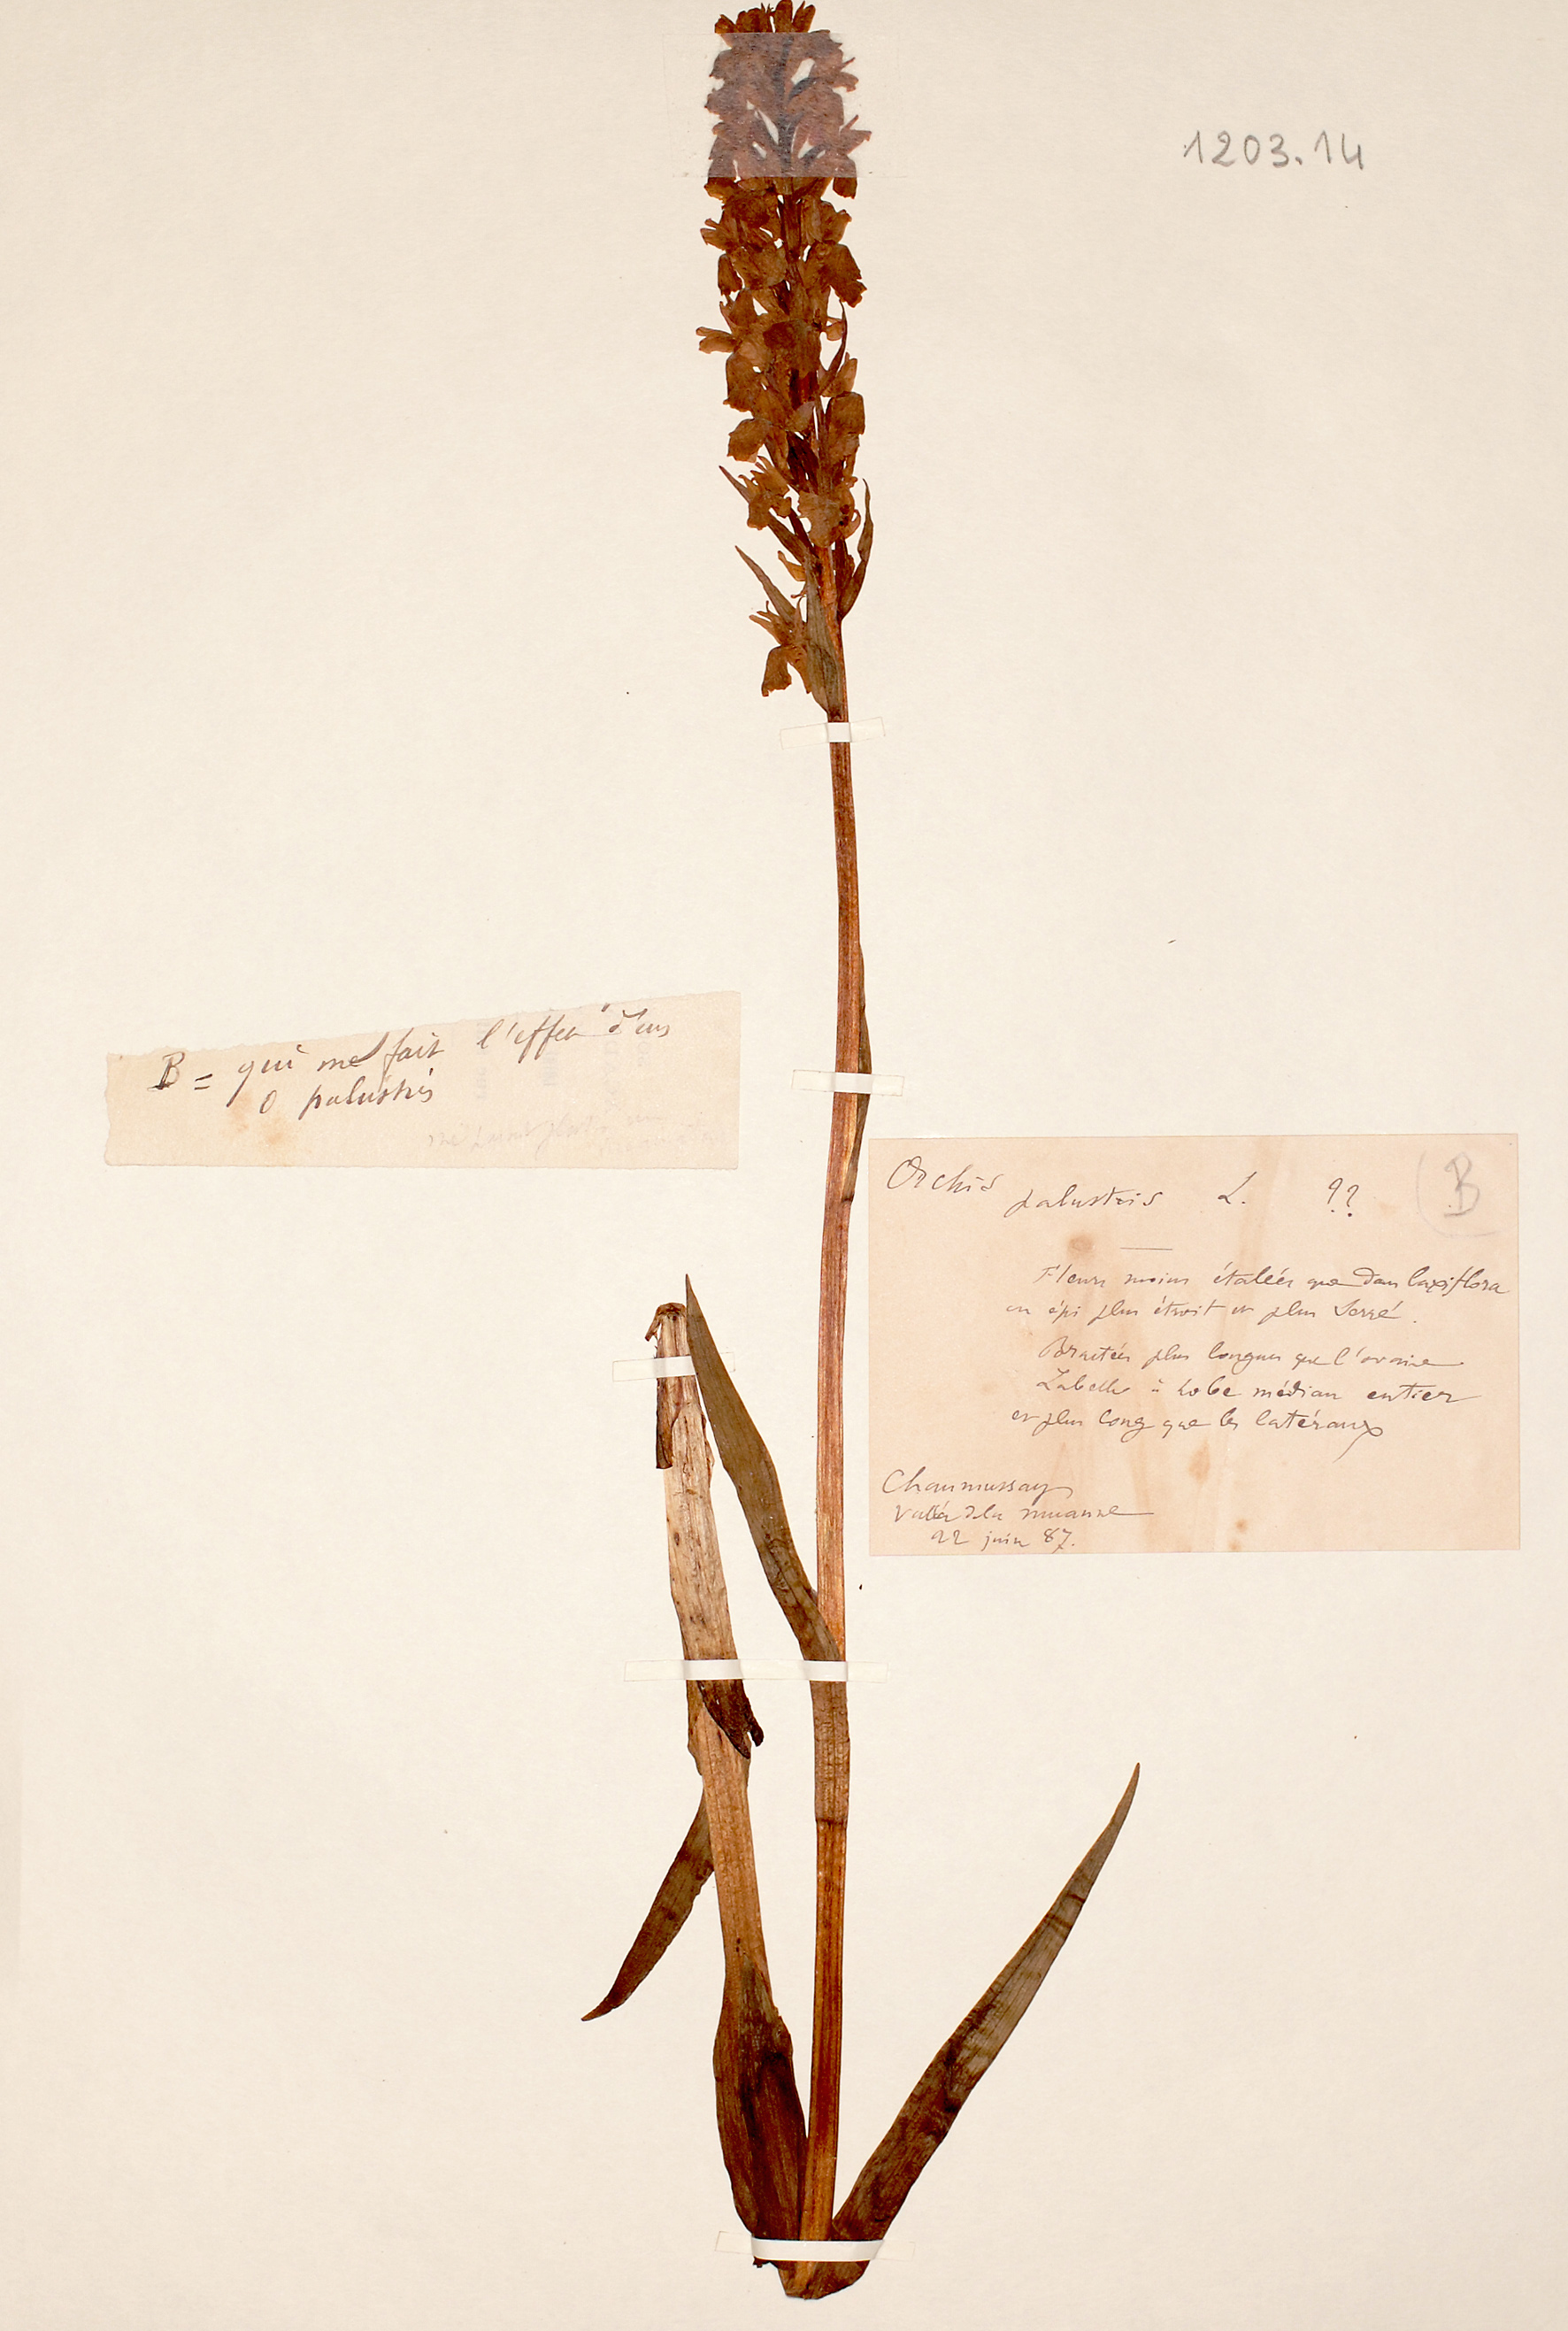 1203.14
B = qui me fait l'effet d'un
O palustris
Orchis palustris L. ?? B
Fleurs moins étalées que dans laxiflora
en épi plus étroit et plus serré.
Bractées plus longues que l'ovaire
Labelle à lobe médian entier
et plus long que les latéraux
Chaumussay
Vallée de la muanne
22 juin 87.